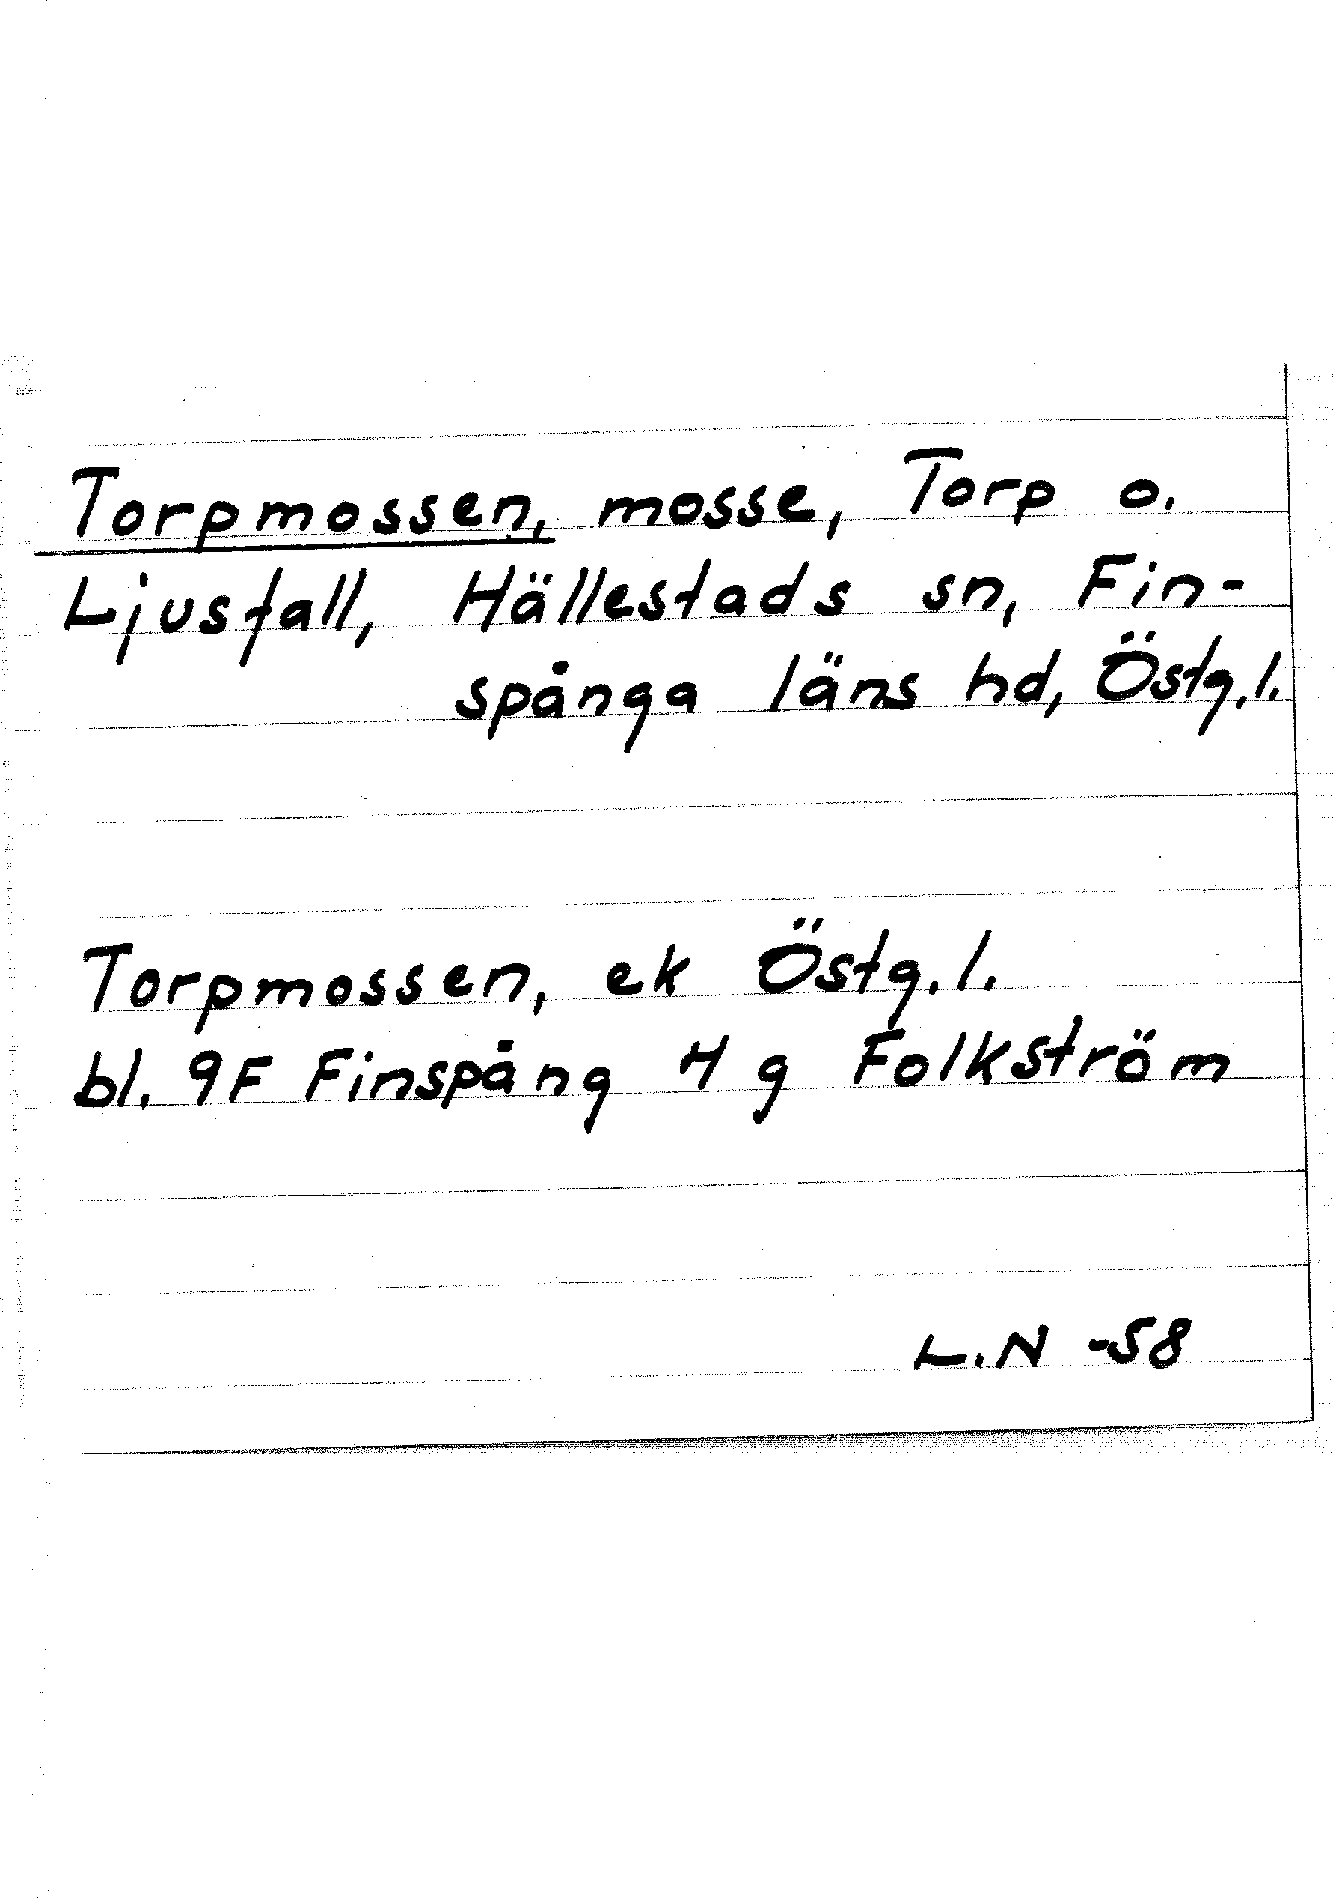 Torpmossen, mosse, Torp o.
Ljusfall, Hällestads sn, Fin-
spånga läns hd, Östg.l.
Torpmossen, ek Östg.l.
bl. 9F Finspång 4 g Folkström
L.N -58